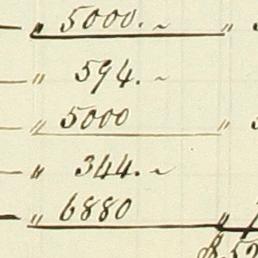 — " 5000. ~ "
— " 594. ~
— " 5000 "
— " 344. ~
— " 6880 "